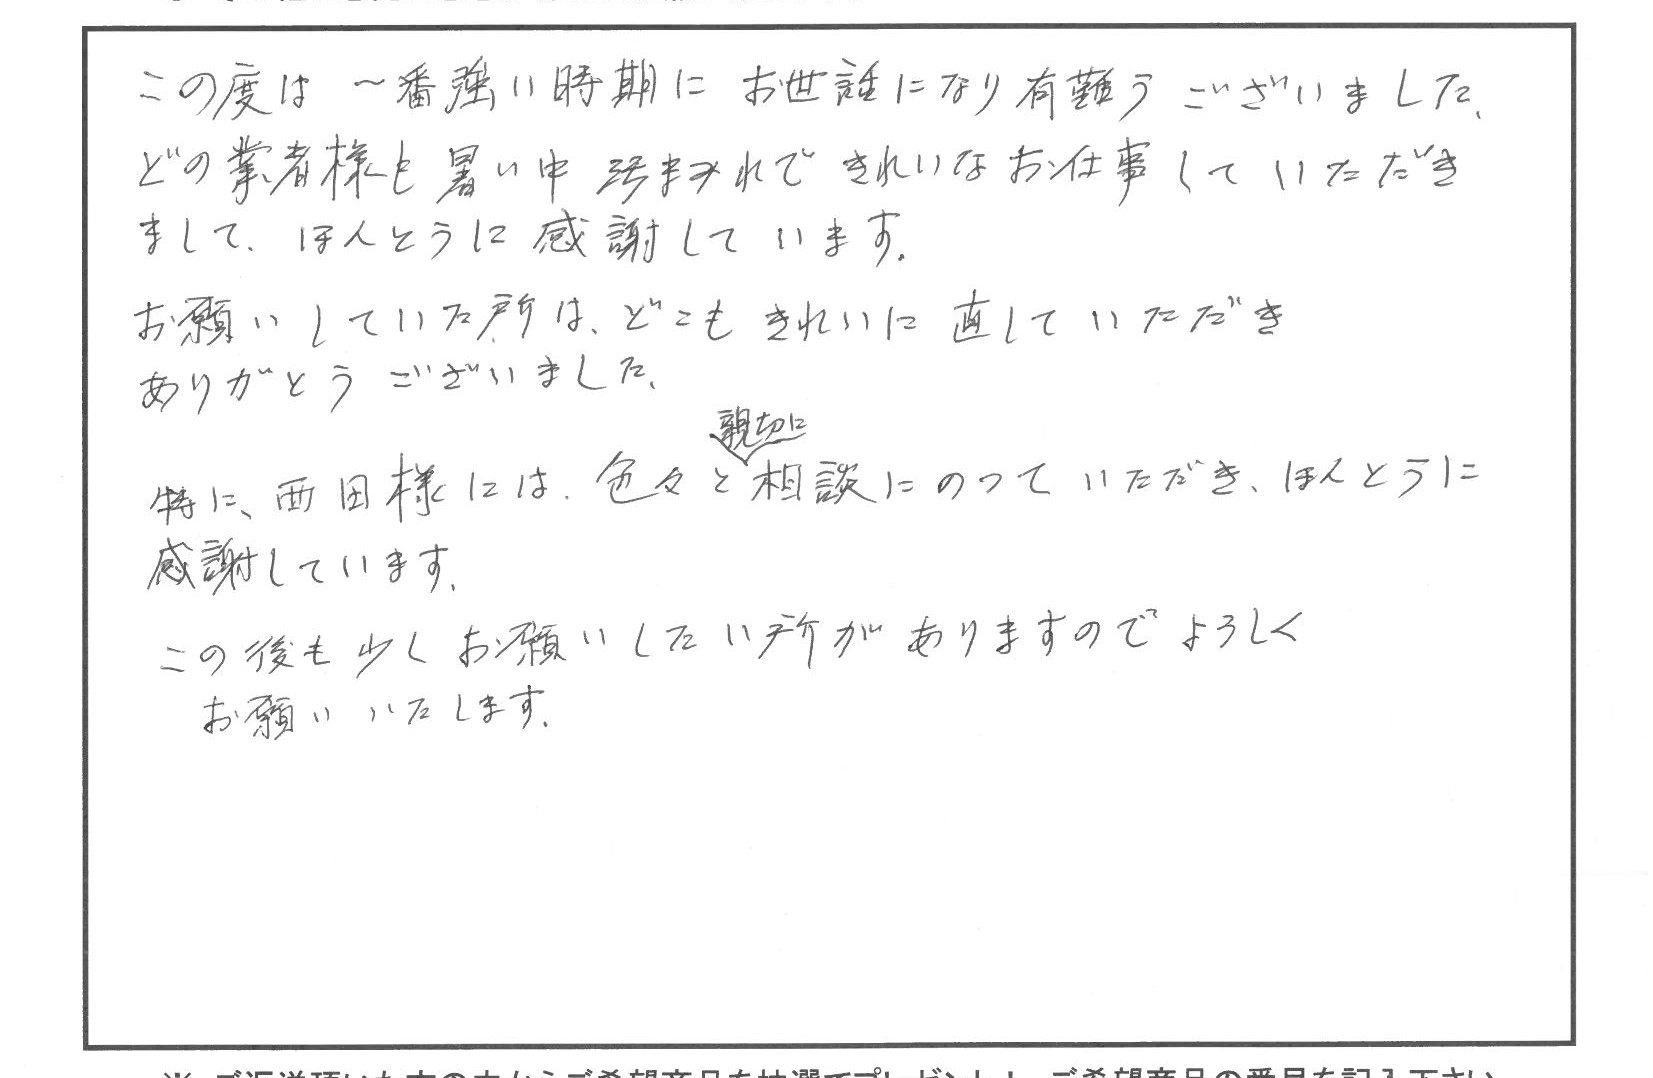 この度は 一番強い時期に お世話になり有難うございました。
どの業者様も暑い中 汚まみれで きれいなお仕事していただき
まして、ほんとうに感謝しています。
お願いしていた所は、どこもきれいに直していただき
ありがとうございました。
親切に
特に、西田様には、色々と相談にのっていただき、ほんとうに
感謝しています。
この後も少しお願いしたい所がありますのでよろしく
お願いいたします。
※ ご返送頂いた方の中からご希望商品を抽選でプレゼント！ ご希望商品の番号を記入下さい